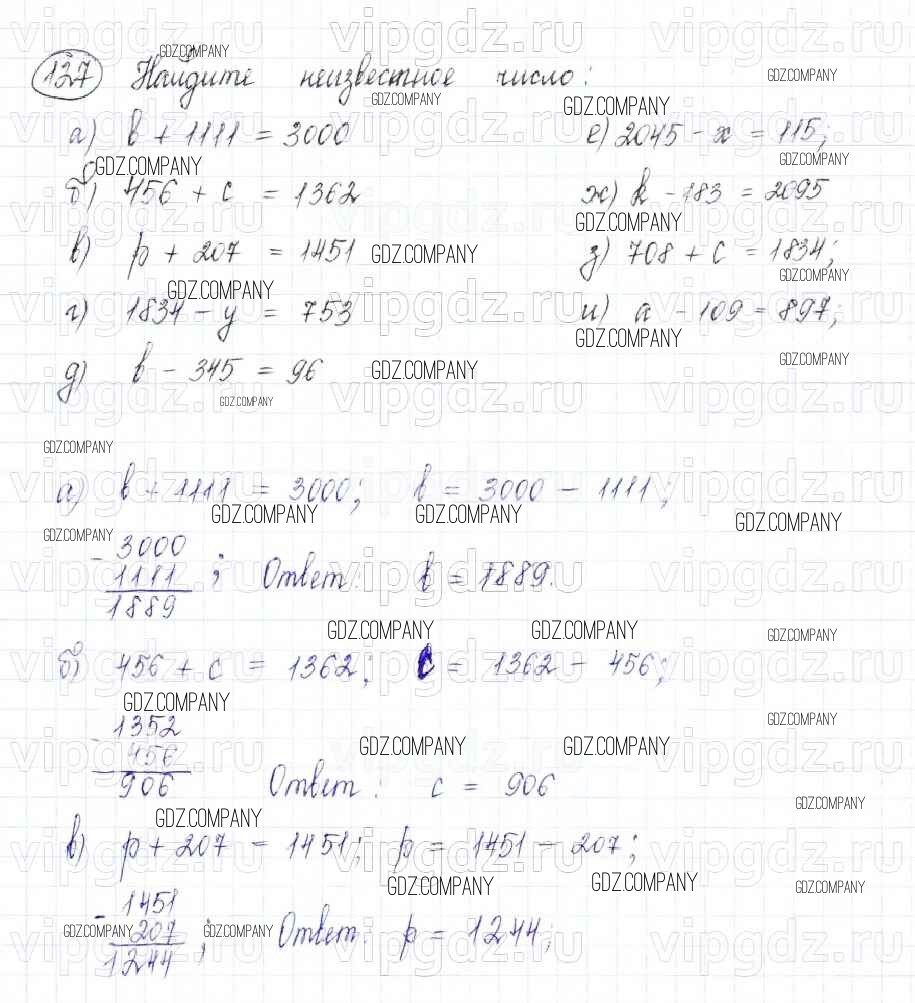 127 Найдите неизвестное число:
а) b + 1111 = 3000
б) 456 + c = 1362
в) p + 207 = 1451
г) 1834 - y = 753
д) b - 345 = 96
е) 2045 - x = 115;
ж) k - 183 = 2095
з) 708 + c = 1834;
и) a - 109 = 897;
а) b + 1111 = 3000; b = 3000 - 1111;
- 3000
1111 ; Ответ: b = 1889.
1889
б) 456 + c = 1362; c = 1362 - 456;
- 1352
456
906 Ответ: c = 906
в) p + 207 = 1451; p = 1451 - 207;
- 1451
207 ; Ответ: p = 1244;
1244
GDZ.COMPANY
vipgdz.ru